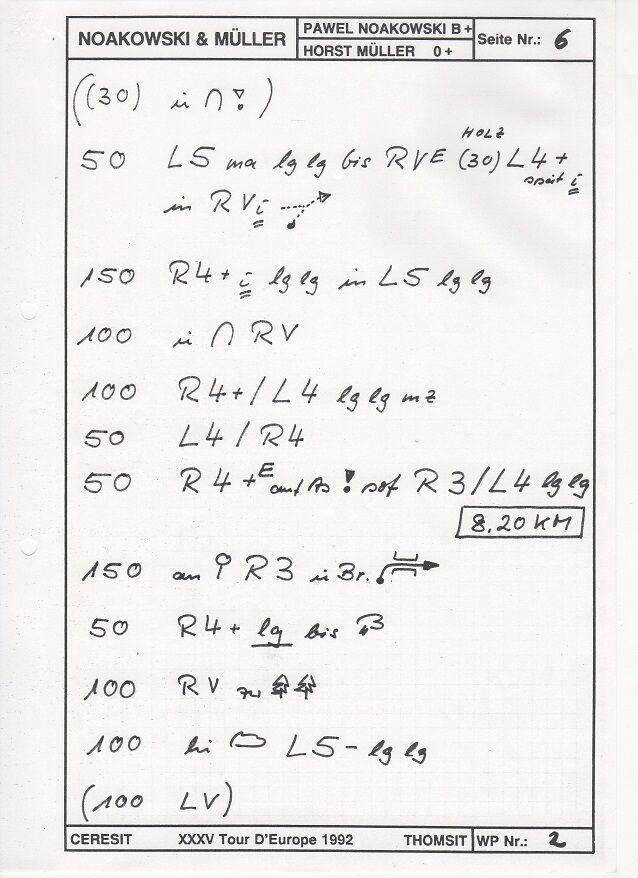 NOAKOWSKI & MÜLLER
PAWEL NOAKOWSKI B+
HORST MÜLLER 0+
Seite Nr.: 6
((30) in ∩ !)
HOLZ
50 L5 ma lg lg bis RVE (30) L4+
i
in RV i
150 R4+ i lg lg in L5 lg lg
100 in ∩ RV
100 R4+/L4 lg lg mz
50 L4/R4
50 R4+E auf As ! sof R3/L4 lg lg
8,20 KM
150 an R3 in Br.
50 R4+ lg bis
100 RV zw
100 bei L5- lg lg
(100 LV)
CERESIT XXXV Tour D'Europe 1992 THOMSIT WP Nr.: 2